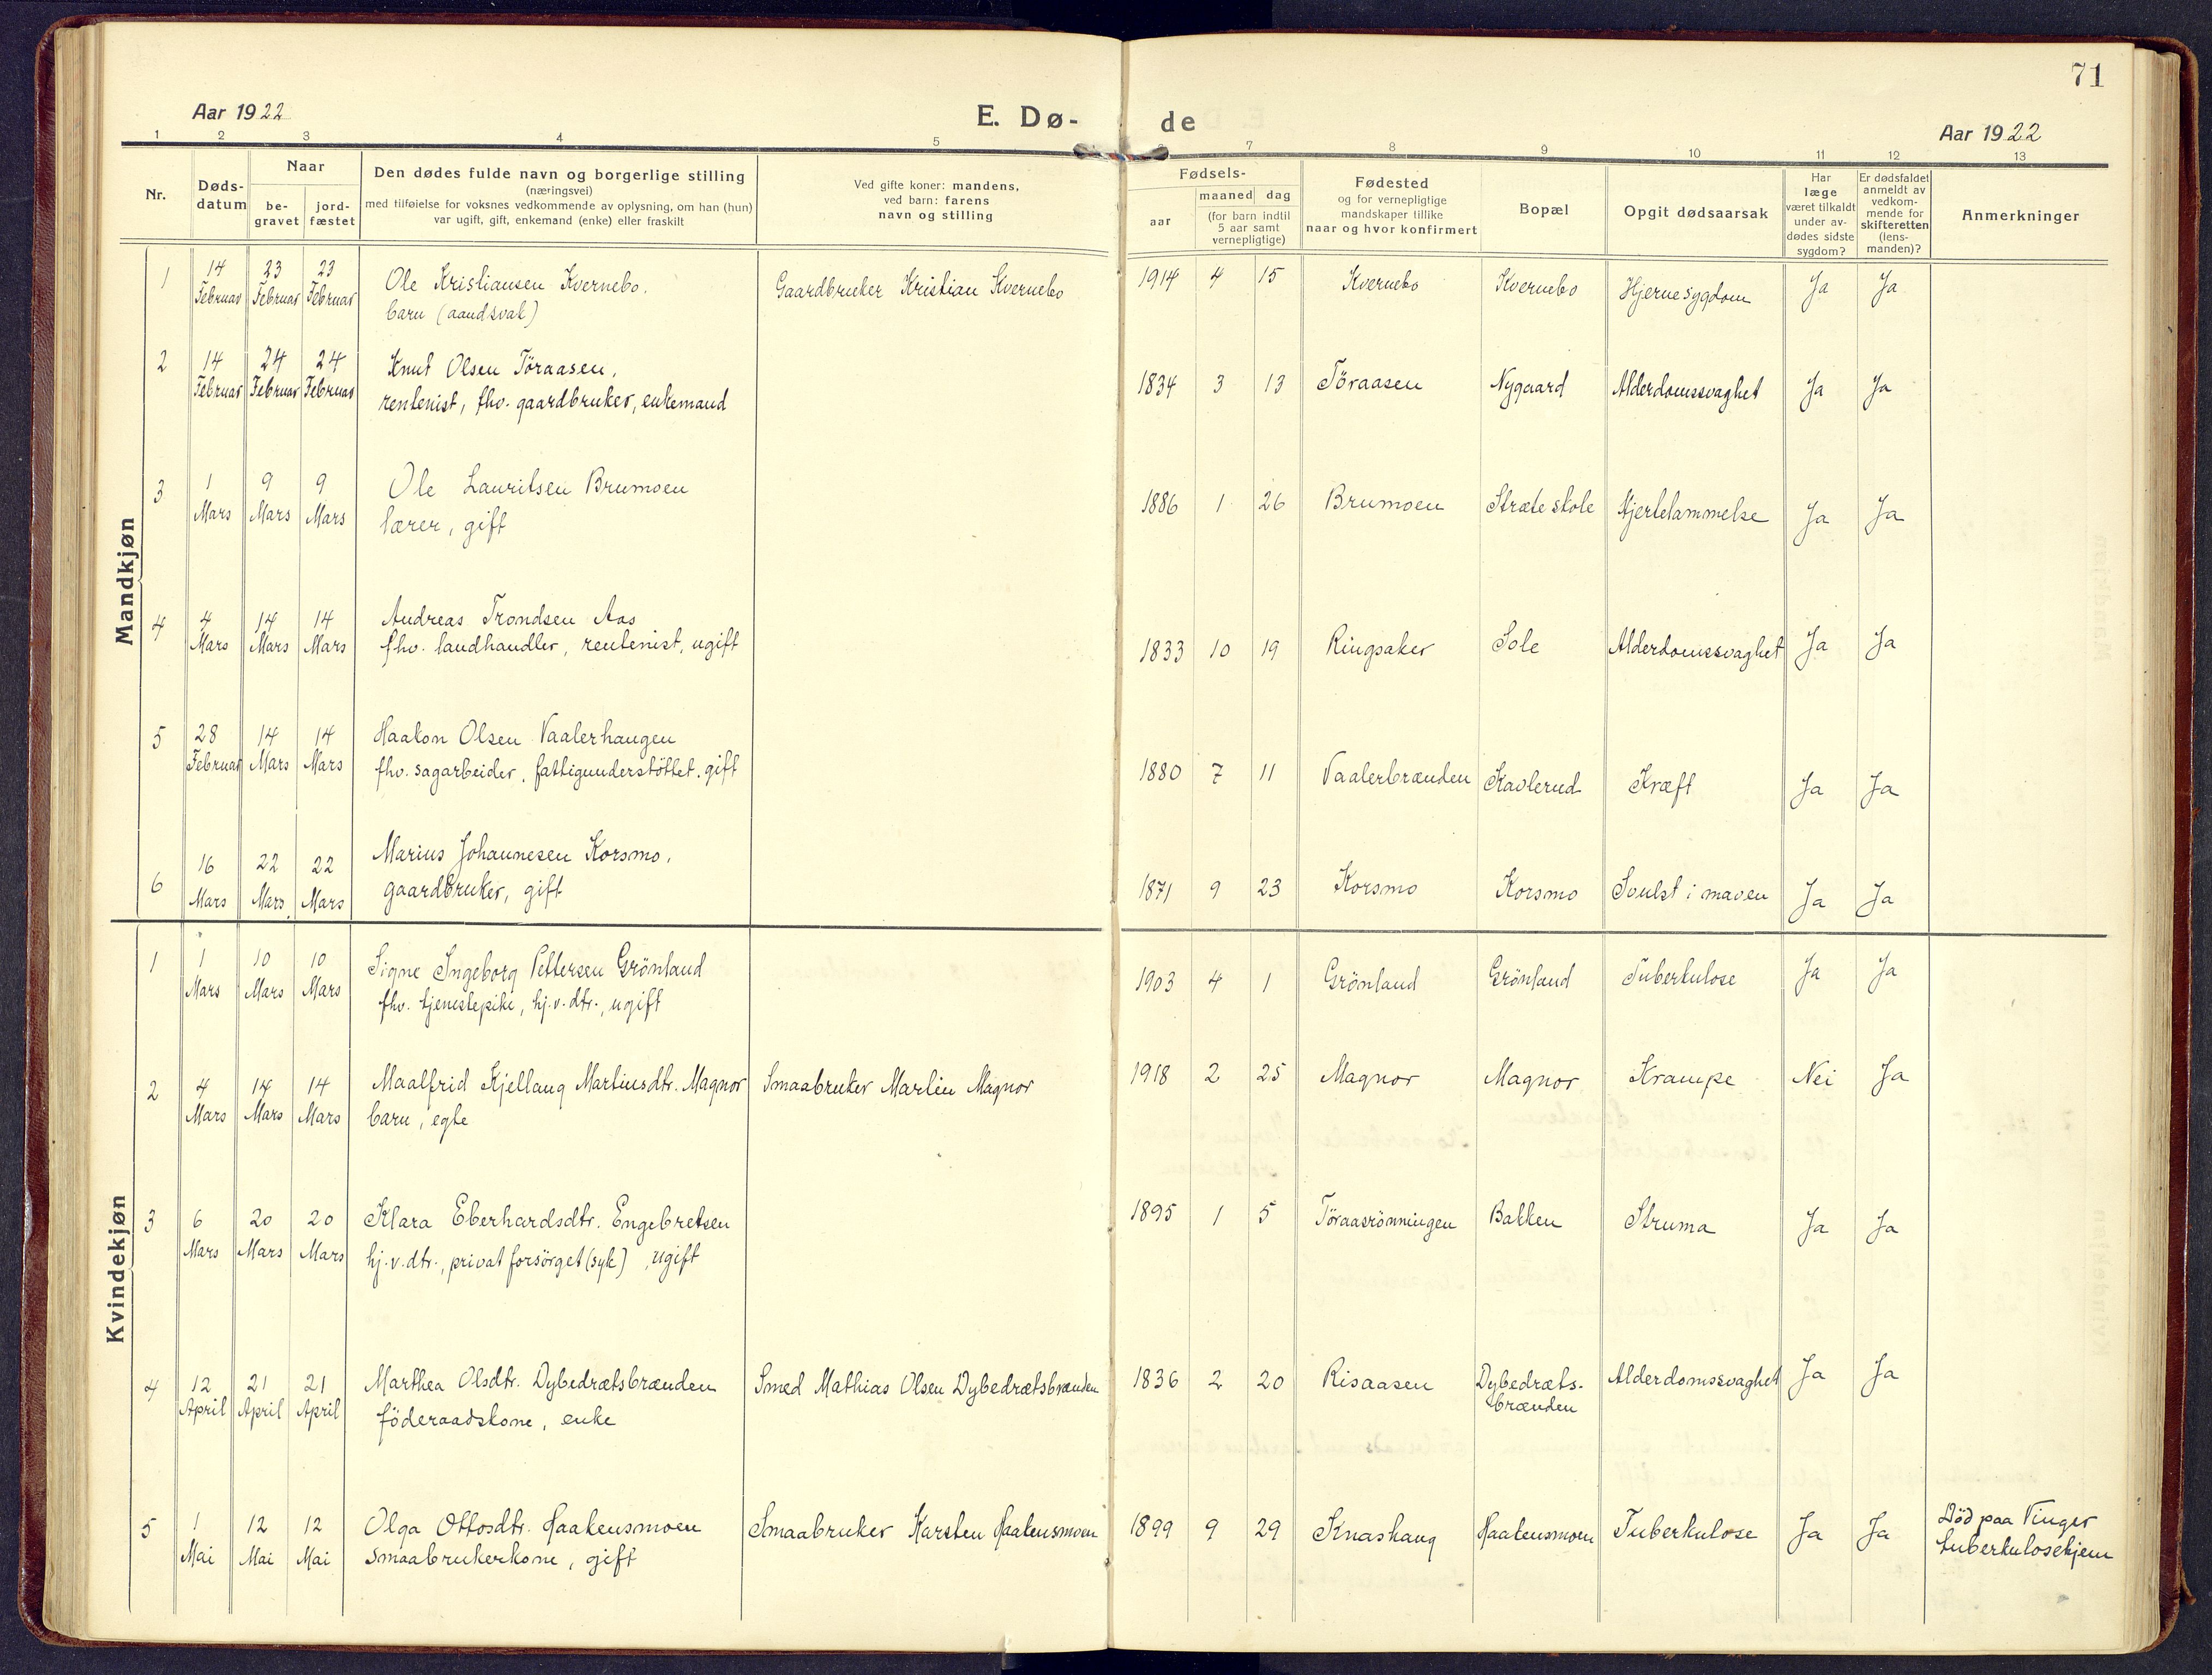 71
Aar 1922
E. Dø-
de
Aar 1922
1 2 3 4 5 6 7 8 9 10 11 12 13
Nr.
Døds-
datum
Naar
be-
gravet
jord-
fæstet
Den dødes fulde navn og borgerlige stilling
(næringsvei)
med tilføielse for voksnes vedkommende av oplysning, om han (hun)
var ugift, gift, enkemand (enke) eller fraskilt
Ved gifte koner: mandens,
ved barn: farens
navn og stilling
Fødsels-
aar
maaned dag
(for barn indtil
5 aar samt
vernepligtige)
Fødested
og for vernepligtige
mandskaper tillike
naar og hvor konfirmert
Bopæl
Opgit dødsaarsak
Har
læge
været tilkaldt
under av-
dødes sidste
sygdom?
Er dødsfaldet
anmeldt av
vedkom-
mende for
skifteretten
(lens-
manden)?
Anmerkninger
Mandkjøn
1 14 23 23 Ole Kristiansen Kvernebo. Gaardbruker Kristian Kvernebo 1914 4 15 Kvernebo Kvernebo Hjernesygdom Ja Ja
Februar Februar Februar barn (aandsvak)
2 14 24 24 Knut Olsen Töraasen, 1834 3 13 Töraasen Nygaard Alderdomssvaghet Ja Ja
Februar Februar Februar rentenist, fhv. gaardbruker, enkemand
3 1 9 9 Ole Lauritsen Brumoen 1886 1 26 Brumoen Stræte skole Hjertelammelse Ja Ja
Mars Mars Mars lærer, gift
4 4 14 14 Andreas Trondsen Aas 1833 10 19 Ringsaker Sole Alderdomssvaghet Ja Ja
Mars Mars Mars fhv. landhandler, rentenist, ugift
5 28 14 14 Haakon Olsen Vaalerhaugen 1880 7 11 Vaalerbrænden Kavlerud Kræft Ja Ja
Februar Mars Mars fhv. sagarbeider, fattigunderstöttet. gift
6 16 22 22 Marius Johannesen Korsmo, 1871 9 23 Korsmo Korsmo Svulst i maven Ja Ja
Mars Mars Mars gaardbruker, gift
Kvindekjøn
1 1 10 10 Signe Ingeborg Pettersen Grönland 1903 4 1 Grönland Grönland Tuberkulose Ja Ja
Mars Mars Mars fhv. tjenestepike, hj.v.dtr., ugift
2 4 14 14 Maalfrid Kjellaug Martinsdtr. Magnor Smaabruker Martin Magnor 1918 2 25 Magnor Magnor Krampe Nei Ja
Mars Mars Mars barn, egte
3 6 20 20 Klara Eberhardsdtr. Engebretsen 1895 1 5 Töraasrönningen Bakken Struma Ja Ja
Mars Mars Mars hj.v.dtr., privat forsörget (syk), ugift
4 12 21 21 Marthea Olsdtr. Dybedrætsbrænden Smed Mathias Olsen Dybedrætsbrænden 1836 2 20 Risaasen Dybedræts- Alderdomssvaghet Ja Ja
April April April föderaadskone, enke brænden
5 1 12 12 Olga Ottosdtr. Haakensmoen Smaabruker Karsten Haakensmoen 1899 9 29 Knashaug Haakensmoen Tuberkulose Ja Ja Död paa Vinger
Mai Mai Mai Smaabrukerkone, gift tuberkulosehjem